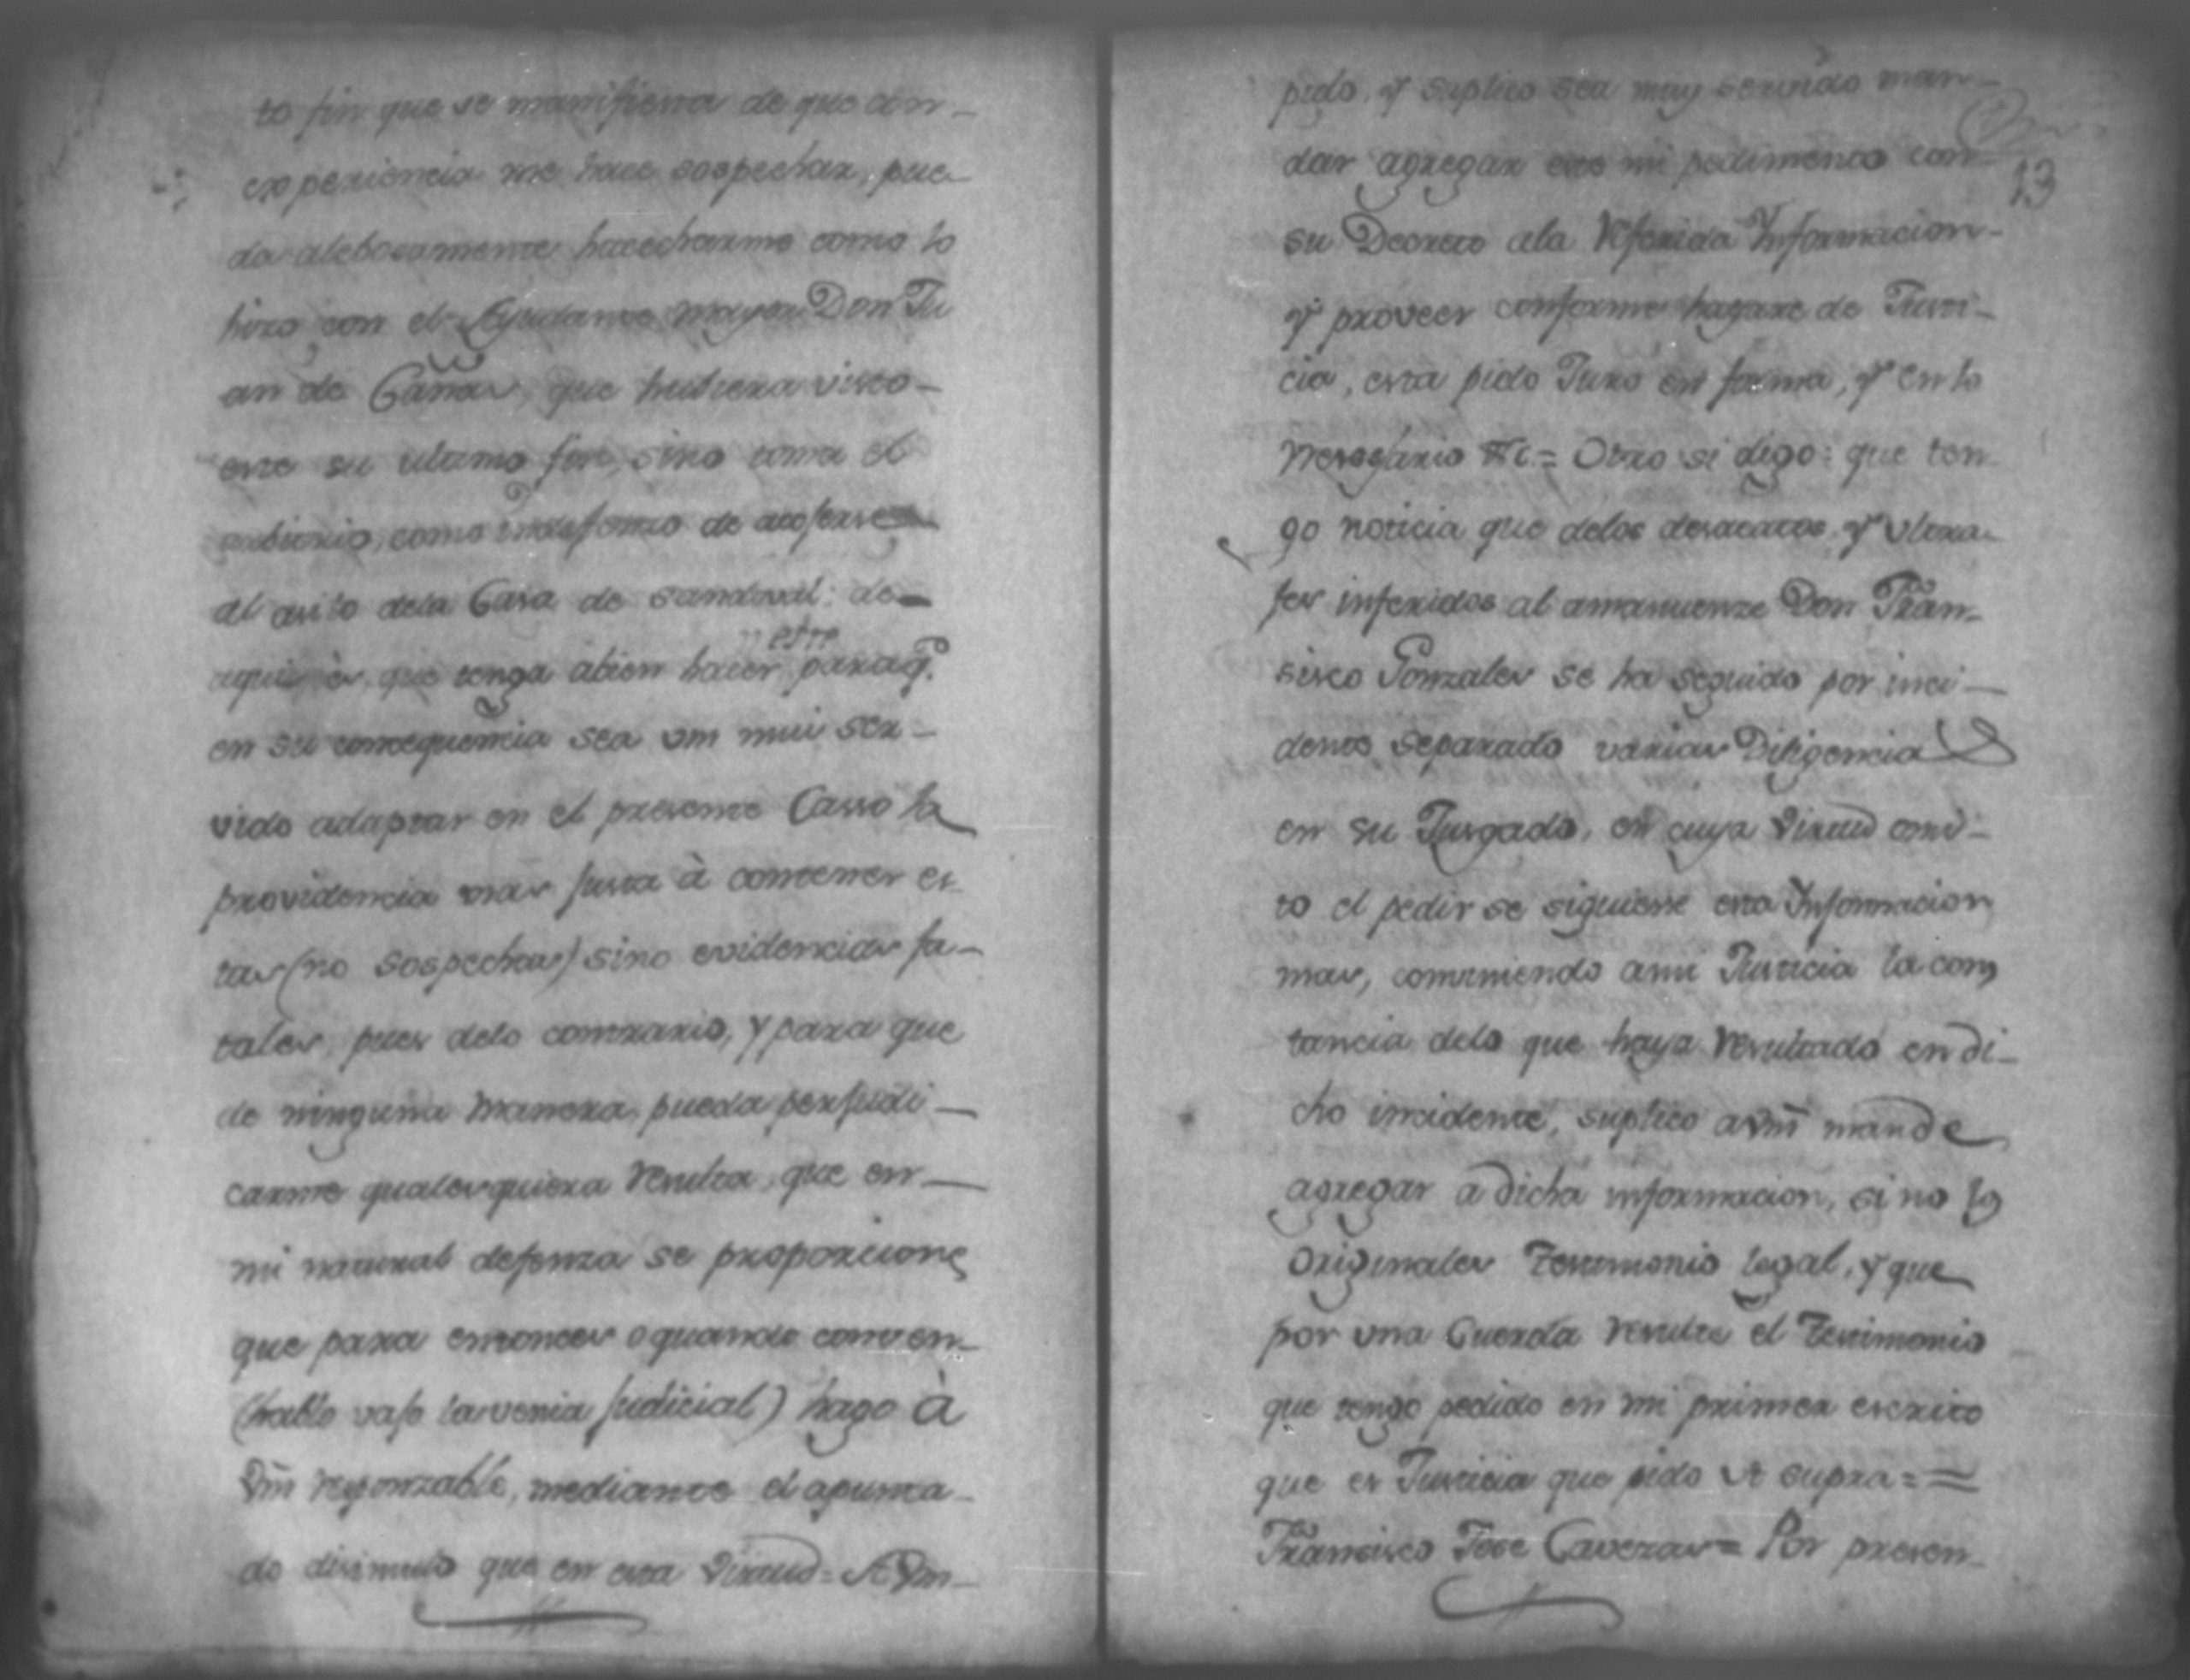 to fin que se manifiesta de que con-
experiencia me hace sospechar, pue-
da alebosamente hacecharme como lo
hizo con el Ayudante mayor Don Ju
an de Cañas, que hubiera visto-
este su ultimo fin, sino toma el
como de acoxerse
al asilo dela Casa de Sandoval: de
aqui es, que tenga abien hacer este paraq.
en su consequencia sea vm mui ser-
vido adaptar en el presente Casso la
providencia mas justa à contener es-
tas (no sospechas) sino evidencias fa-
tales, pues delo contrario, y para que
de ninguna manera, pueda perjudi-
carme qualesquiera resulta, que en-
mi natural defenza se proporcione
que para entonces o quando conven-
(hablo vajo la venia judicial) hago à
Vm̃ responzable, mediante el apunta-
do disimulo que en esta virtud = A Vm-
pido, y suplico sea muy servido man-
dar agregar este mi pedimento con
13
su Decreto ala referida Informacion-
y proveer conforme hagare de Justi-
cia, esta pido Juro en forma, y en lo
nesesario &c.= Otro si digo: que ten-
go noticia que delos desacatos, y ultra-
jes inferidos al amanuenze Don Fran-
sisco Gonzales se ha seguido por inci-
dente separado varias Diligencias
en su Jusgado, en cuya virtud consi-
to el pedir se siguiese esta Informacion
mas, conviniendo ami Justicia la cons
tancia delo que haya resultado en di-
cho incidente, suplico avm̃ mande
agregar a dicha informacion, si no lo
originales Testimonio legal, y que
por una Cuerda resulte el Testimonio
que tengo pedido en mi primer escrito
que es Justicia que pido Vt supra = =
Francisco Jose Caveras = Por presen-